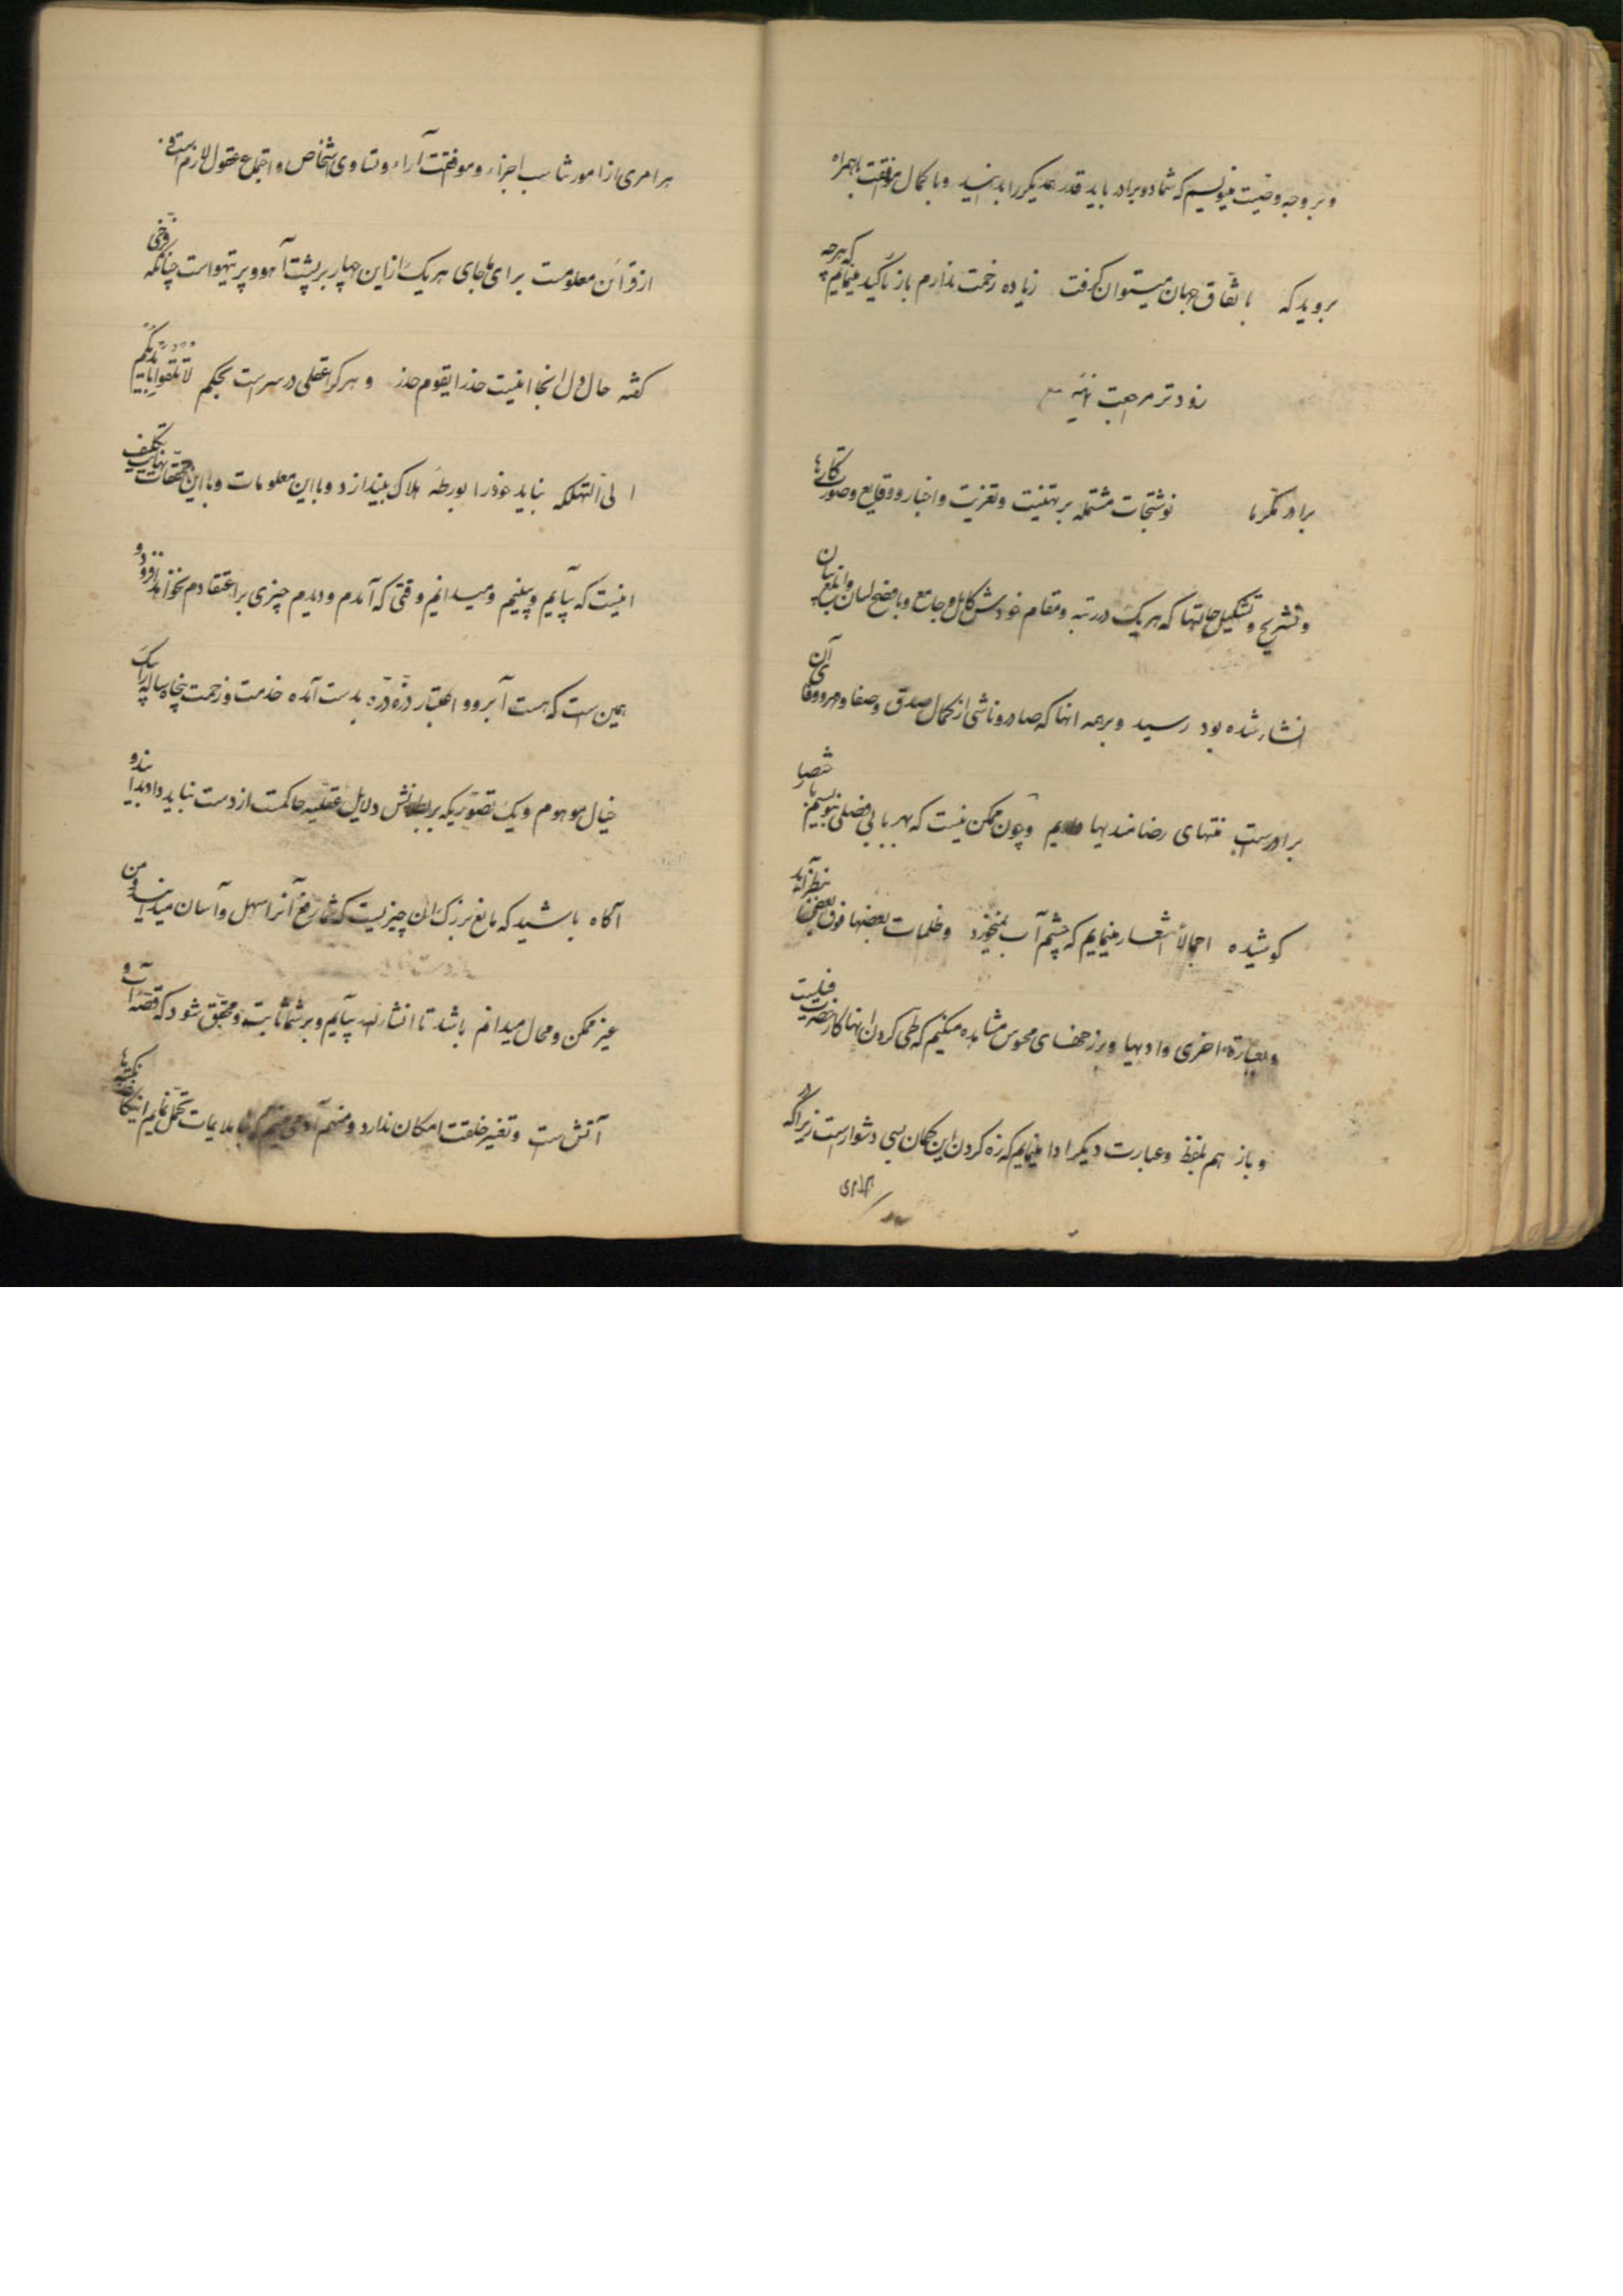 و بر وجه وصیت مینویسم که شما دو برادر باید قدر همدیگر را بدانید و با کمال موافقت باهم راه
بروید که باتفاق جهان میتوان گرفت زیاده زحمت ندارم باز تاکید مینمایم که هرچه
زودتر مراجعت نمائید
برادر مکرما نوشتجات مشتمله بر تهنیت و تعزیت و اخبار و وقایع و صور نگاریها
و تشریح و تشکیل حالتها که هر یک در رتبه و مقام خودش کامل و جامع و بافصح لسان و ابلغ بیان
انشاء شده بود رسید و بر همه انها که صادر و ناشی از کمال صدق و صفا و مهر و وفای آن
برادرست منتهای رضامندیها داریم و چون ممکن نیست که بهر بابی فصلی بنویسیم باختصار
کوشیده اجمالاً اشعار مینمایم که چشم آب نمیخورد و ظلمات بعضها فوق بعض بنظر میآید
و بعبارة اخری وادیها و برزخهای محوس مشاهده میکنیم که طی کردن انها کار خضرست
و باز هم بلفظ و عبارت دیگر ادا مینمایم که زه کردن این کمان بسی دشوارست زیرا که در
هر امری از امور تناسب اجزاء و موافقت آراء و تساوی اشخاص و اجتماع عقول لازم است و
از قرائن معلومست برای ما جای هر یک از این چهار بر پشت آهو و پر تیهو است چنانکه فرخی
گفته حال دل انجا اینست حذرا یقوم حذر و هر کرا عقلی در سر است بحکم لا تلقوا بایدیکم
الی التهلکه نباید خود را بورطه هلاک بیندازد و با این معلومات و با این تحقیقات نهایت تکلیف
اینست که بیائیم و ببینیم و میدانیم وقتی که آمدم و دیدم چیزی بر اعتقادم نخواهد افزود و
همین است که هست آبرو و اعتبار ذره ذره بدست آمده خدمت و زحمت پنجاه ساله را بیک
خیال موهوم و یک تصوریکه بر بطلانش دلایل عقلیه حاکمست از دست نباید داد بدانید و
آگاه باشید که مانع بزرگ ان چیزیست که شما رفع آنرا سهل و آسان میدانید و من
غیر ممکن و محال میدانم باشد تا انشاءالله بیایم و بر شما ثابت و محقق شود که قصه آب و
آتش است و تغییر خلقت امکان ندارد و منهم آدمی نیستم که ناملایمات تحمل نمایم